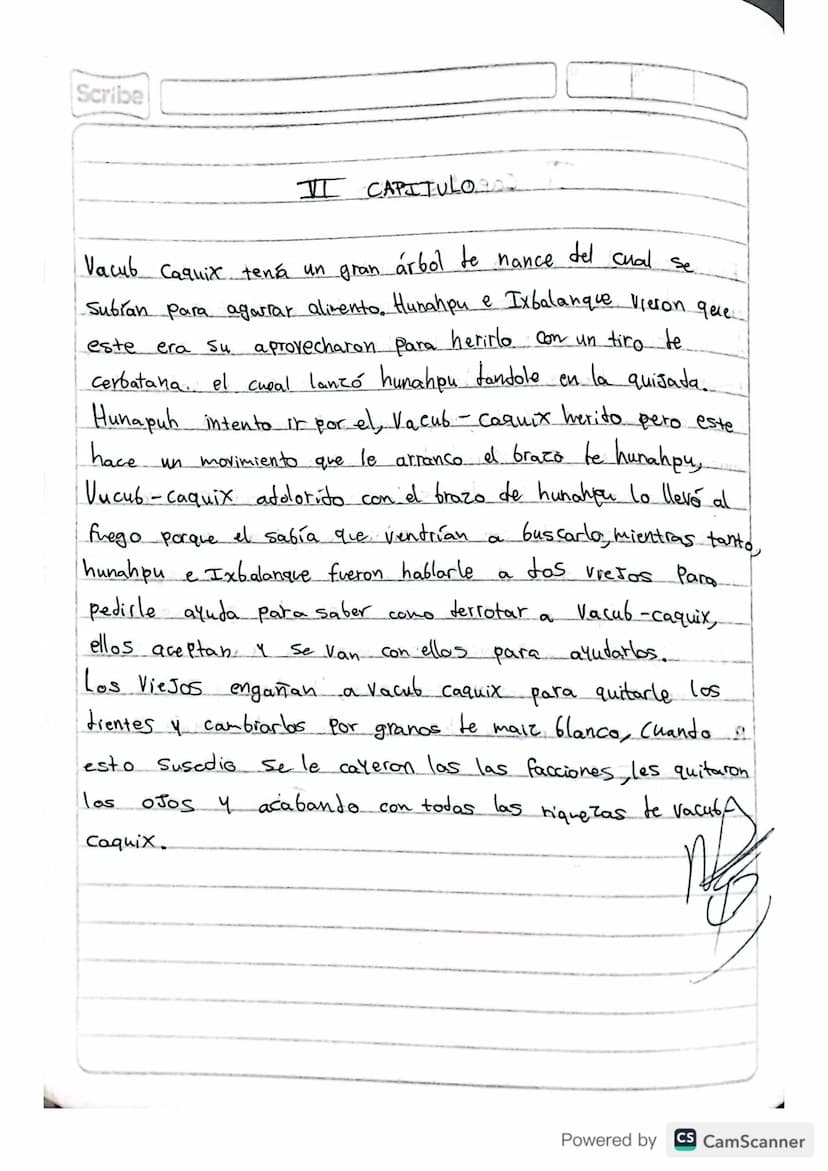 Scribe
VI CAPITULO
Vacub Caquix tená un gran árbol de nance del cual se
subían para agarrar alimento. Hunahpu e Ixbalanque vieron que
este era su aprovecharon para herirlo con un tiro de
cerbatana. el cual lanzó hunahpu dandole en la quijada.
Hunapuh intento ir por el, Vacub-caquix herido pero este
hace un movimiento que le arranco el brazo de hunahpu,
Vucub-caquix adolorido con el brazo de hunahpu lo llevó al
fuego porque el sabía que vendrían a bussarlo, mientras tanto,
hunahpu e Ixbalanque fueron hablarle a dos viejos para
pedirle ayuda para saber como derrotar a Vacub-caquix,
ellos aceptan y se van con ellos para ayudarlos.
Los Viejos engañan a vacub caquix para quitarle los
dientes y cambiarlos por granos de maiz blanco, cuando
esto susedio se le cayeron las las facciones, les quitaron
los ojos y acabando con todas las riquezas de vacub
caquix.
Powered by CS CamScanner